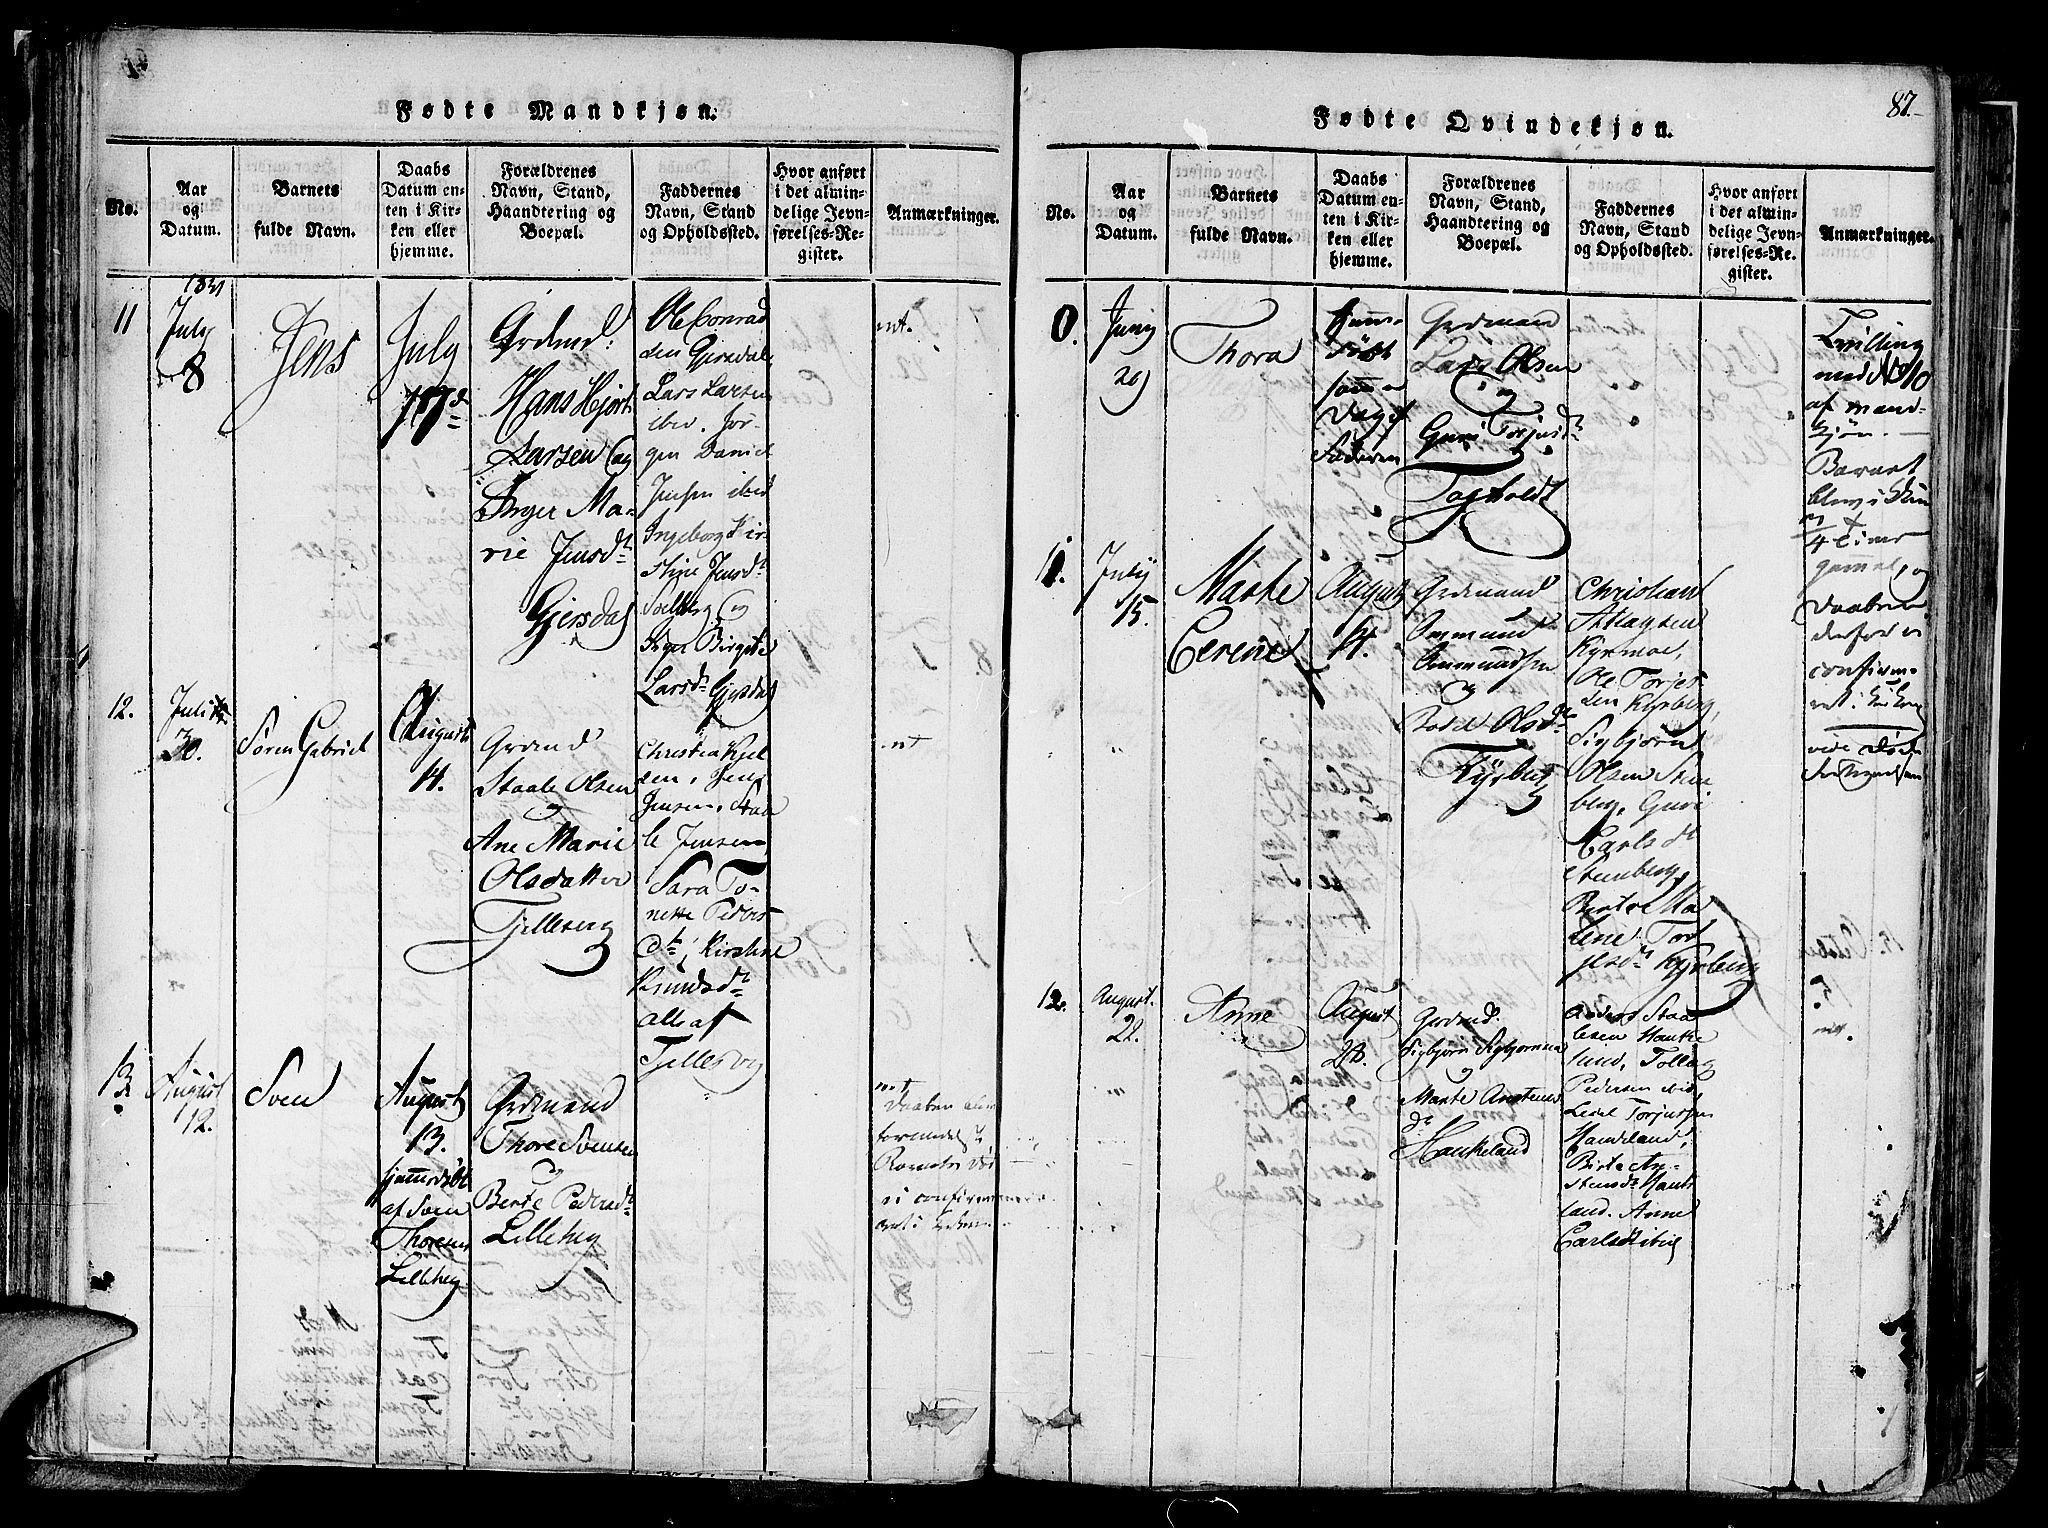 Fødte Mandkjøn.
No.
Aar
og
Datum.
Barnets
fulde Navn.
Daabs
Datum en-
ten i Kir-
ken eller
hjemme.
Forældrenes
Navn, Stand,
Haandtering og
Boepæl.
Faddernes
Navn, Stand
og Opholdssted.
Hvor anført
i det almin-
delige Jevn-
førelses-Re-
gister.
Anmærkninger.
11
1831
July
8
Jens
July
17de
Grdmd:
Hans Hjort
Larsen og
Inger Ma-
rie Jensdt
Gjersdal
Ole Conrad
sen Gjersdal,
Lars Larsen
ibid. Jør-
gen Daniel
Jensen ibid
Ingeborg Kir-
stine Jensdt
og
Inger Birgitte
Larsdt Gjersdal
nt.
12.
Juli
30.
Søren Gabriel
August
14.
Grdmd
Staale Olsen
og
Ane Marie
Olsdatter
Tjellevig
Christia Kjel
sen, Jens
Jensen, Staa
le Jensen,
Sara To-
nette Peders
dt, Kirstine
Knudsdt
alle af
Tjellevig
nt
13.
August
12.
Sven
August
13.
hjemmedøbt
af Sven
Thoresen
Lillehey
Grdmand
Thore Svensen
og
Berte Pedersdt
Lillehey
nt
Daaben
Barnets død
ei confirme-
ret i Kirken
Fødte Qvindekjøn.
87.
No.
Aar
og
Datum.
Barnets
fulde Navn.
Daabs
Datum en-
ten i Kir-
ken eller
hjemme.
Forældrenes
Navn, Stand,
Haandtering og
Boepæl.
Faddernes
Navn, Stand
og Opholdssted.
Hvor anført
i det almin-
delige Jevn-
førelses-Re-
gister.
Anmærkninger.
Juny
29
Thora
hjem-
døbt
samme
Dag af
Faderen
Grdmand
Lars Olsen
og
Guri Torjusdt
Fagholdt
Tvilling
med No 10
af mand-
kjøn.
Barnet
blev i
4 timer
gamel, og
Daaben
derfor ei
confirme-
ret i Kirken
vide Døde
11.
July
15.
Marte
Cerene
August
14.
Grdmand
Ommund
Ommundsen
og
Bodel Olsdt
Kyrberg
Christian
Attlagsen
Ole Torjes
sen Kyrberg,
Sigbjørn
Olsen Sten
berg, Guri
Carlsdt
Stenberg
Berte Ma
lene Tor
jesdt Kyrberg
12.
August.
22.
Anne
August
28.
Grdmd.
Sigbjørn Sigbjørnsen
og
Marte Anstens
dt
Haukeland
Anders Staa
lesen Hauke
land, Tollag
Pedersen ibid
Ledel Torjussen
Haukeland,
Birte An-
stensdt Hauke
land. Anne
Carlsdt ibid
nt.